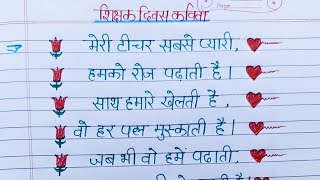 Page
शिक्षक दिवस कविता
मेरी टीचर सबसे प्यारी,
हमको रोज पढ़ाती है।
साथ हमारे खेलती है,
वो हर पल मुस्काती है।
जब भी वो हमें पढ़ाती,